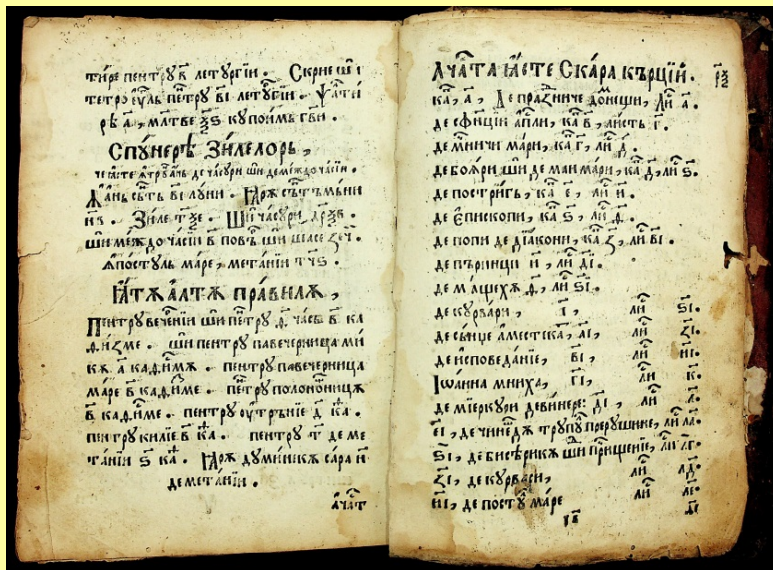 тире пентрꙋ к҃ летꙋргїи. Скрие ши і
тетроеѵль пентрꙋ ві летꙋргїи. Ѱатир
рѣ а҃, млтве ꙁ҃ѕ кꙋпоимъ гви.
Спꙋнерѣ Зилелорь,
че аꙋ часꙋри ши де междочасїи.
Ꙟ ань сѫнть ві лꙋни.
н҃в. Зиле т҃ѯе. Ши часꙋри
ши междочасїи в҃ повъ ши шасе ꙁечи
апостꙋль маре, метанїи т҃чѕ.
Ꙗтѫ алтѫ правилѫ,
Пентрꙋ вечернїи ши пентрꙋ ѳ҃ часъ в҃ ка
ѳизме. ши пентрꙋ павечерница ми
кѫ а҃ каѳимѫ. пентрꙋ павечерница
маре в҃ каѳиме. пентрꙋ полоношницѫ
в҃ каѳиме. пентрꙋ оутрънїе д҃ ка.
пентрꙋ килїе в҃ ка. пентрꙋ т҃ де ме
танїи ѕ҃ ка. Ꙗрѫ дꙋминикѫ сара н҃
де метанїи.
ачаст
Ачаста ꙗсте Скара кърцїй. р҃ѯꙁ
ка, а. Де празниче домнещи, ли а.
де сфиции апли, ка в, листь г.
де мꙋничи мари, ка г, ли д.
де бояри ши де маи мари, ка д, ли ѕ.
де постригь, ка е, ли и.
де епископи, ка ѕ, ли ѳ.
де попи де дїакони, ка ꙁ, ли ві.
де пъринци и, ли ді.
де мащехѫ ѳ, ли ѕі.
де кꙋрвари, і, ли ѕі.
де сънџе аместїкат, аі, ли ꙁі.
де исповеданїе, ві, ли иі.
Іѡанна мниха, гі, ли к.
де мїеркꙋри де винере: ді, ли л.
еі, де чинедѫ трꙋпꙋл прерꙋшине, ли ла.
ѕі, де бисѣрикѫ ши прищенїе, ли лг.
ꙁі, де кꙋрваси, ли лд.
иі, де постꙋл маре ли ле.